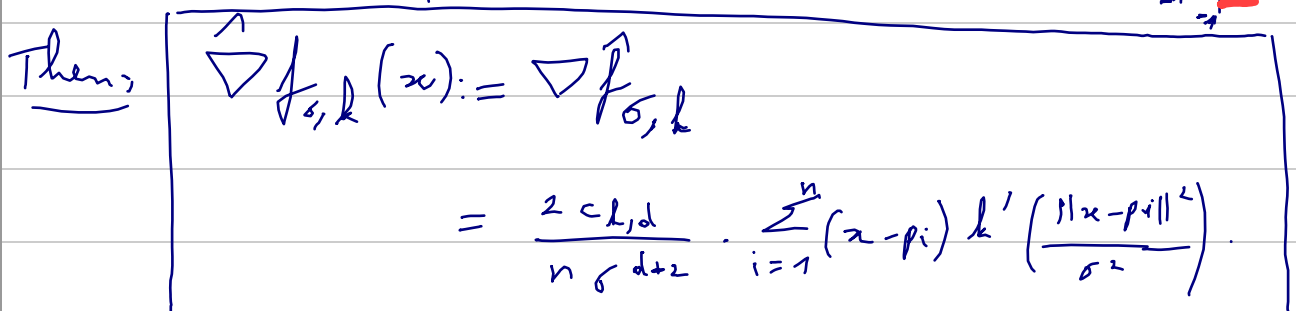 Then, $\hat{\nabla} f_{\sigma,k}(x) := \nabla \hat{f}_{\sigma,k}$
$= \frac{2 c_{k,d}}{n \sigma^{d+2}} \cdot \sum_{i=1}^{n} (x - p_i) k' \left( \frac{||x - p_i||^2}{\sigma^2} \right).$